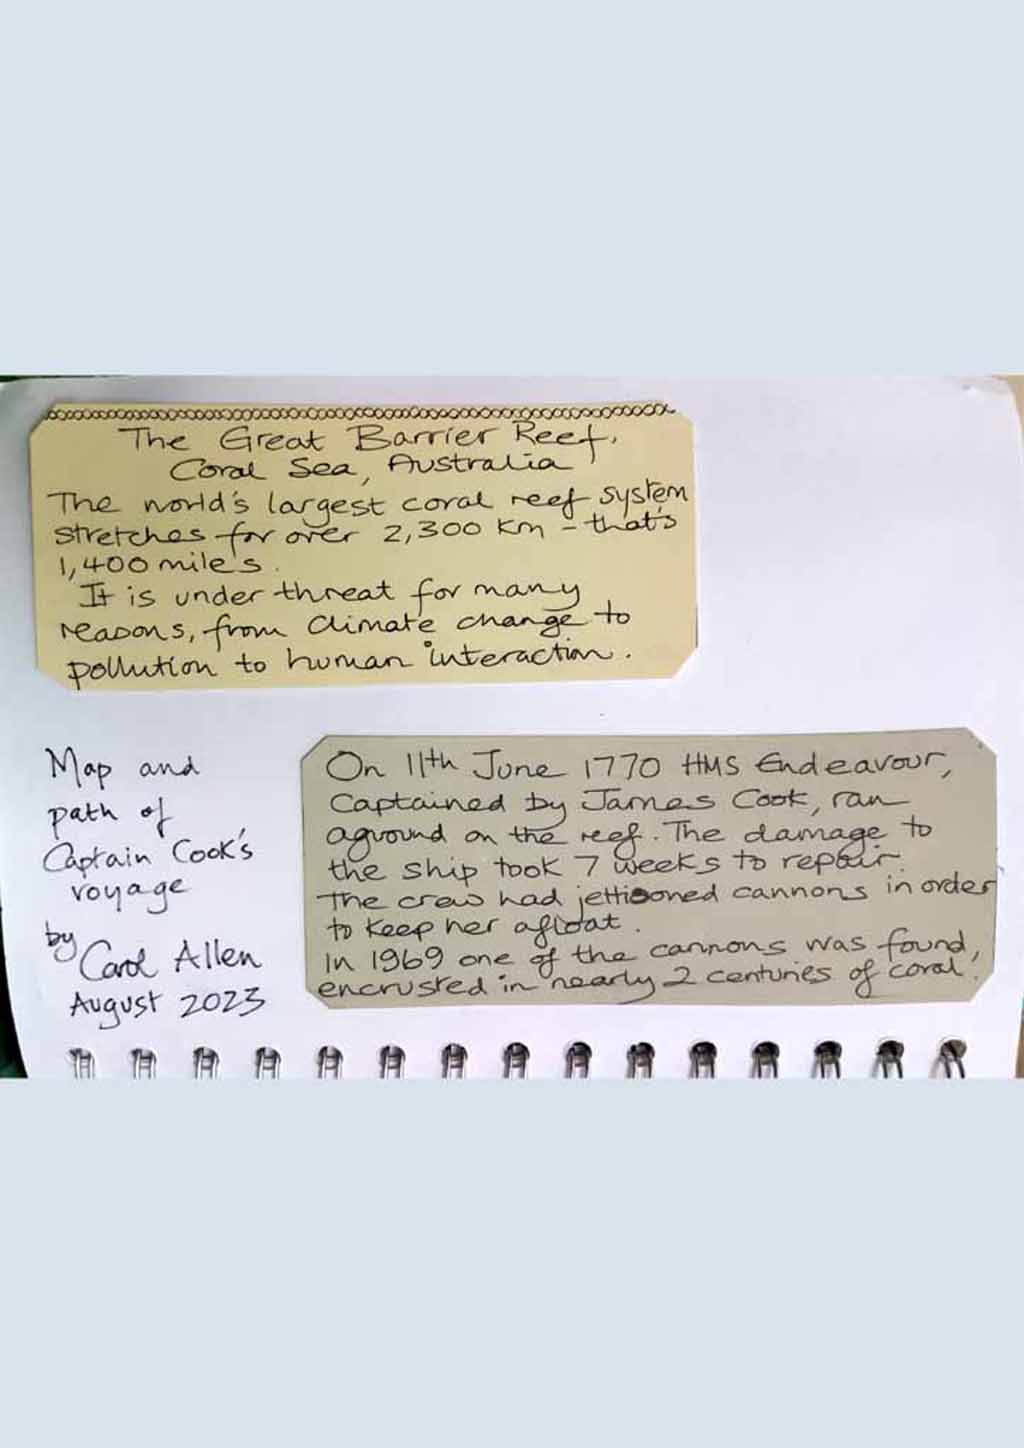 The Great Barrier Reef,
Coral Sea, Australia
The world's largest coral reef system
stretches for over 2,300 km - that's
1,400 miles.
It is under threat for many
reasons, from climate change to
pollution to human interaction.
Map and
path of
Captain Cook's
voyage
by
Carol Allen
August 2023
On 11th June 1770 HMS Endeavour,
captained by James Cook, ran
aground on the reef. The damage to
the ship took 7 weeks to repair.
The crew had jettisoned cannons in order
to keep her afloat.
In 1969 one of the cannons was found,
encrusted in nearly 2 centuries of coral.